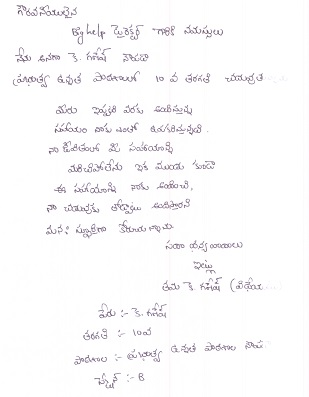 గౌరవనీయులైన
Big help డైరెక్టర్ గారికి నమస్తులు
నేను అనగా కె. గణేష్ నాయుడు
ప్రభుత్వ ఉన్నత పాఠశాలలో 10 వ తరగతి చదువుత
మీరు ఇప్పటి వరకు అందిస్తున్న
సహాయం నాకు ఎంతో ఉపకరిస్తున్నది.
నా జీవితంలో మీ సహాయాన్ని
మరిచిపోలేను ఇక ముందు కూడా
ఈ సహాయాన్ని నాకు అందించి,
నా చదువుకు తోడ్పాటు అందిస్తారని
మనఃస్ఫూర్తిగా కోరుచున్నాను
సదా ధన్యవాదాలు
ఇట్లు
తమ కె. గణేష్ (విధేయ
పేరు :- కె. గణేష్
తరగతి :- 10వ
పాఠశాల :- ప్రభుత్వ ఉన్నత పాఠశాల నాయు
సెక్షన్ :- B